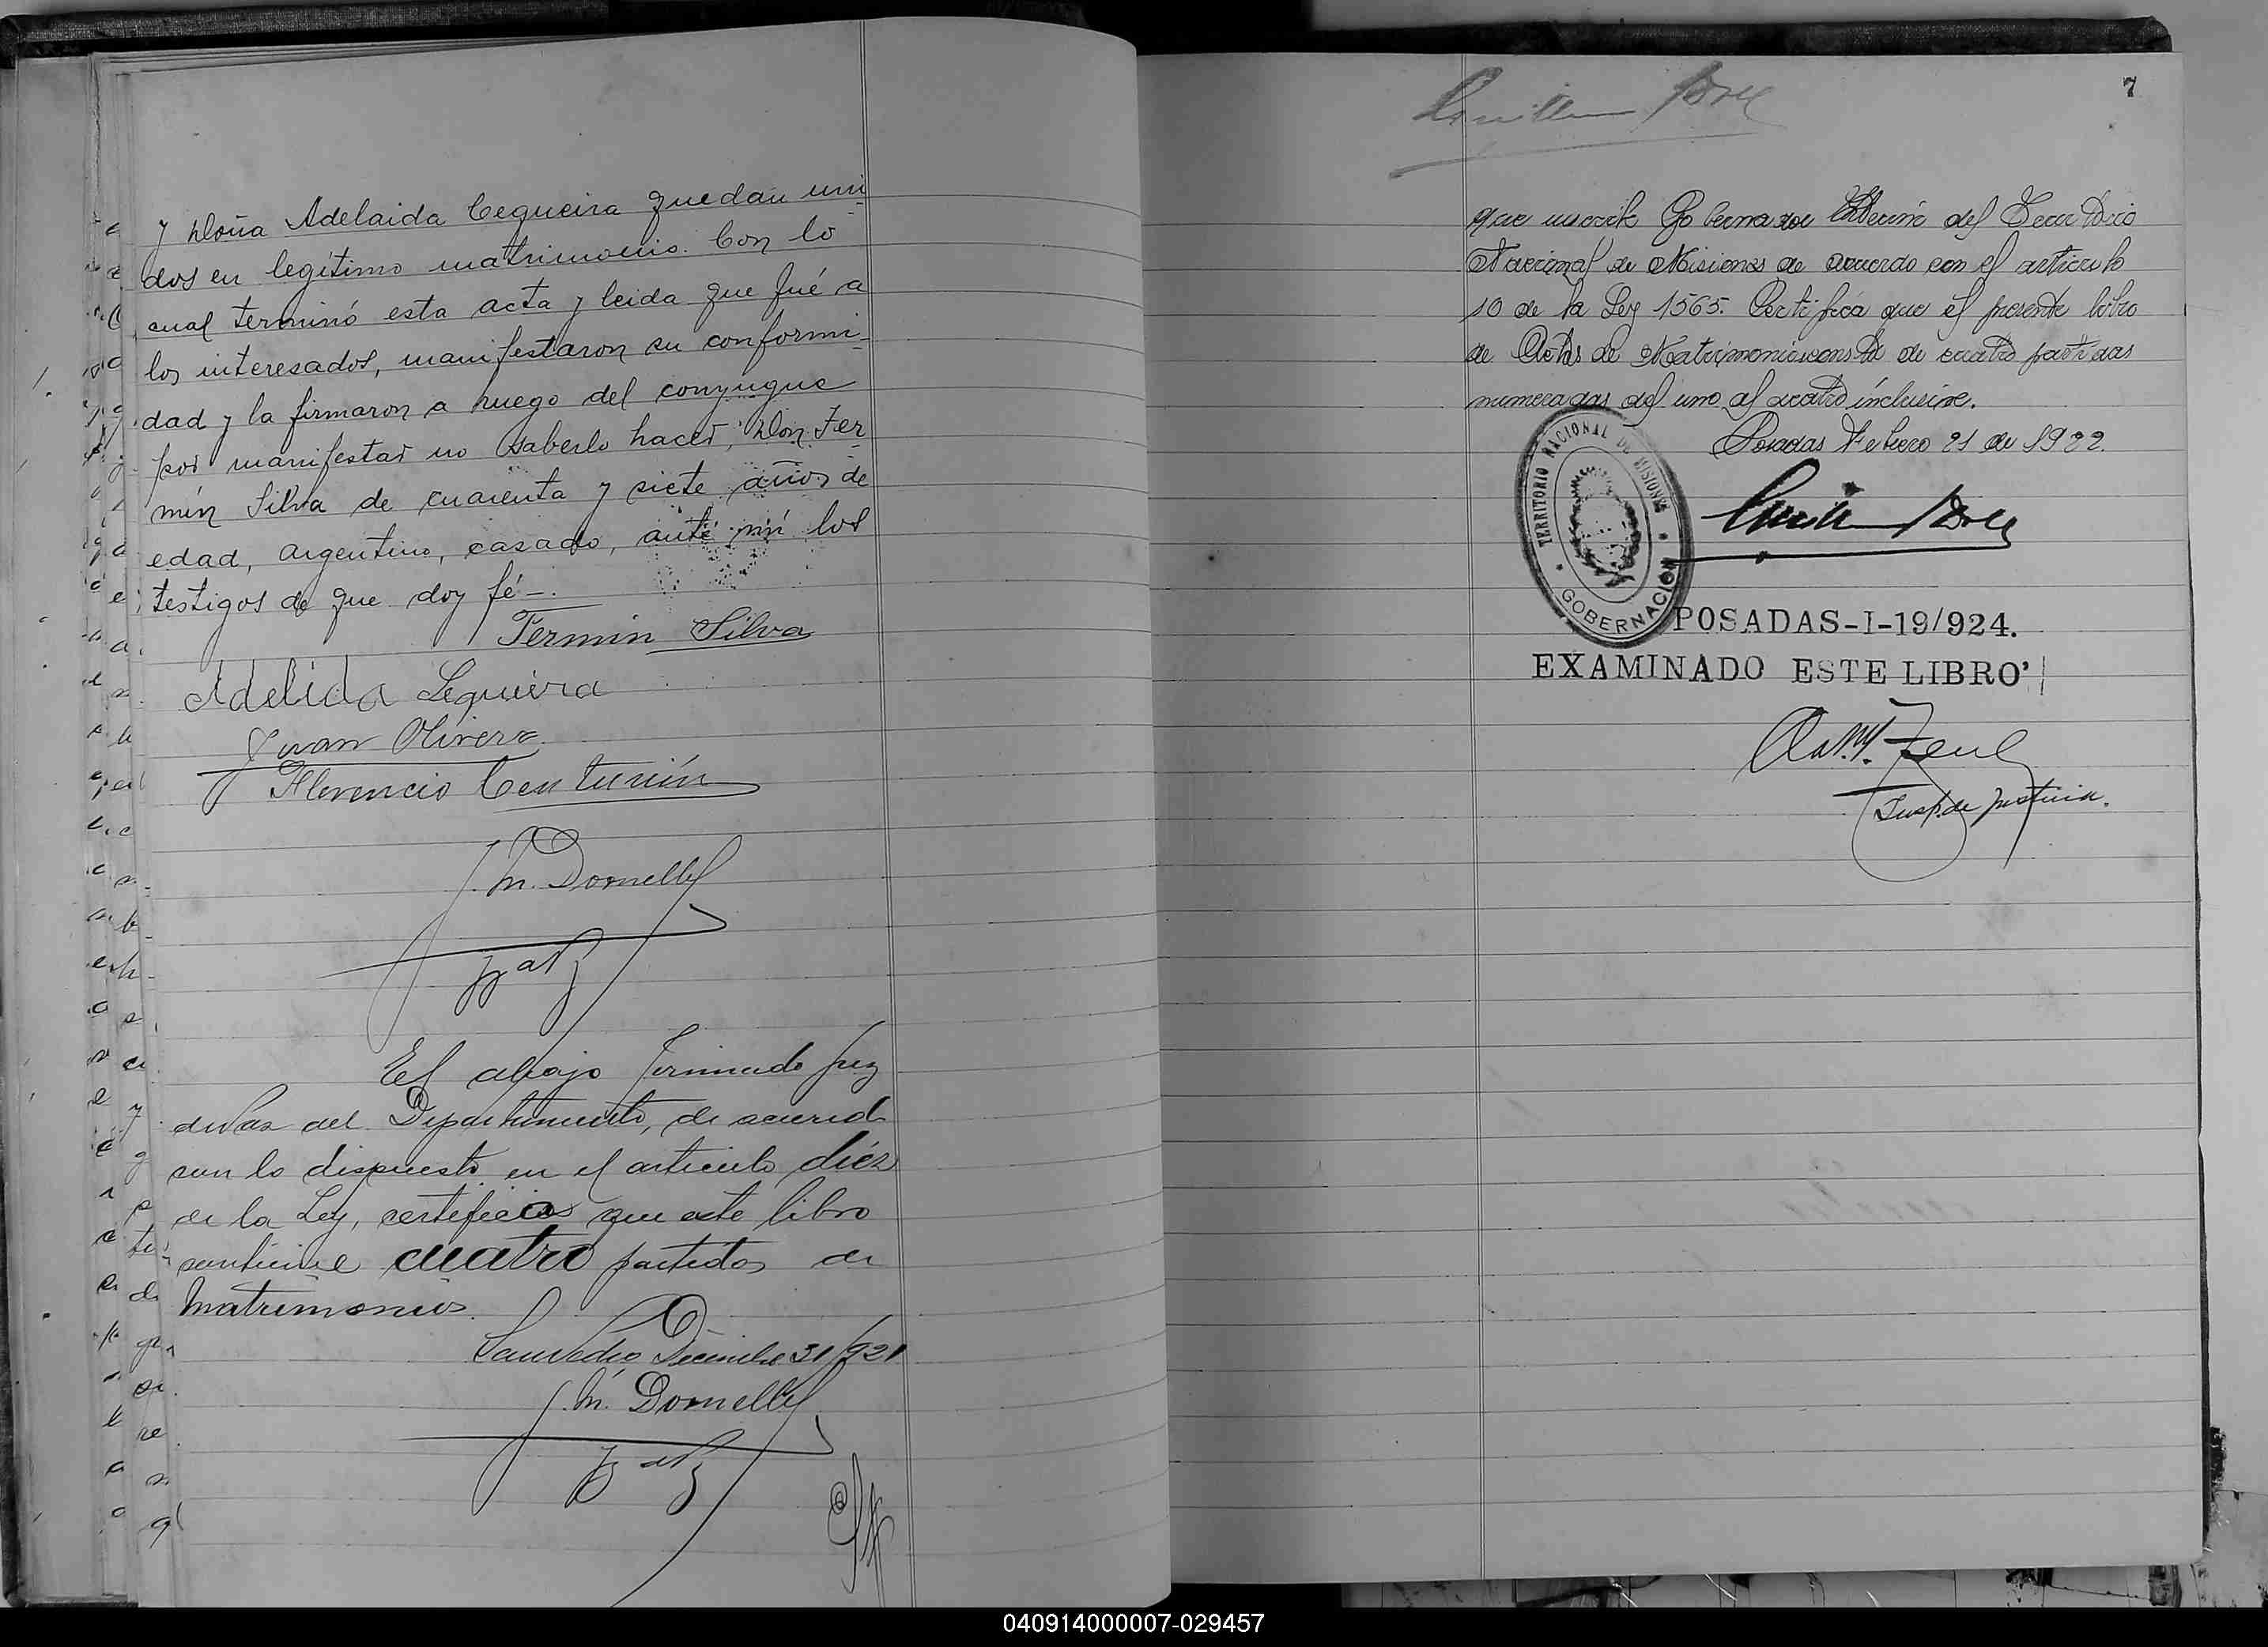 y Doña Adelaida Cequeira quedan uni-
dos en legítimo matrimonio. Con lo
cual terminó esta acta y leida que fué a
los interesados, manifestaron su conformi-
dad y la firmaron a ruego del conyugue
por manifestar no saberlo hacer, Don Fer-
mín Silva de cuarenta y siete años de
edad, argentino, casado, ante mí los
testigos de que doy fé-.
Fermin Silva
Adelida Sequeira
Juan Olivera
Florencio Centurión
J. M. Donnelly
El abajo firmado Juez
de Paz del Departamento, de acuerdo
con lo dispuesto en el articulo diéz
de la Ley, certifica que este libro
contiene cuatro partidas de
Matrimonios.
San Pedro Diciembre 31/921
J. M. Donnelly
7
que suscribe Gobernador Interino del Territorio
Nacional de Misiones de acuerdo con el articulo
10 de la Ley 1565. Certifica que el presente libro
de Actas de Matrimonios consta de cuatro partidas
numeradas del uno al cuatro inclusive.
Posadas Febrero 21 de 1922.
TERRITORIO NACIONAL DE MISIONES
GOBERNACION
POSADAS-I-19/924.
EXAMINADO ESTE LIBRO
Insp. de Justicia.
040914000007-029457